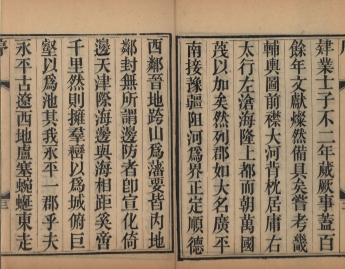 肄業士子不二年蕆厥事蓋百
餘年文獻燦然備具矣嘗考畿
輔輿圖前襟大河背枕居庸右
太行左滄海隆上都而朝萬國
茂以加矣然列郡如大名廣平
南接豫疆阻河爲界正定順德
西鄰晉地跨山爲藩要皆內地
鄰封無所謂邊防者卽宣化倚
邊天津際海邊與海相距奚啻
千里然則擁羣巒以爲城俯巨
壑以爲池其我永平一郡乎夫
永平古遼西地盧塞蜿蜒東走